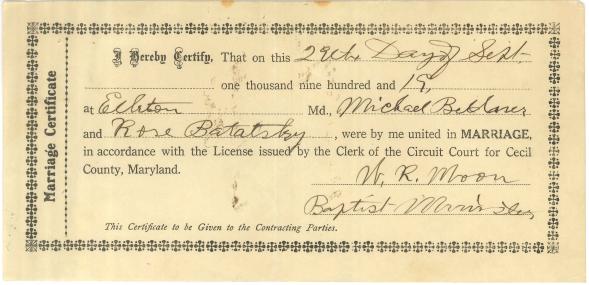 Marriage Certificate
I Hereby Certify, That on this 29th Day of Sept.
one thousand nine hundred and 19,
at Elkton Md., Michael
and Rose Batatsky, were by me united in MARRIAGE,
in accordance with the License issued by the Clerk of the Circuit Court for Cecil
County, Maryland.
W. R. Moon
Baptist Minister
This Certificate to be Given to the Contracting Parties.